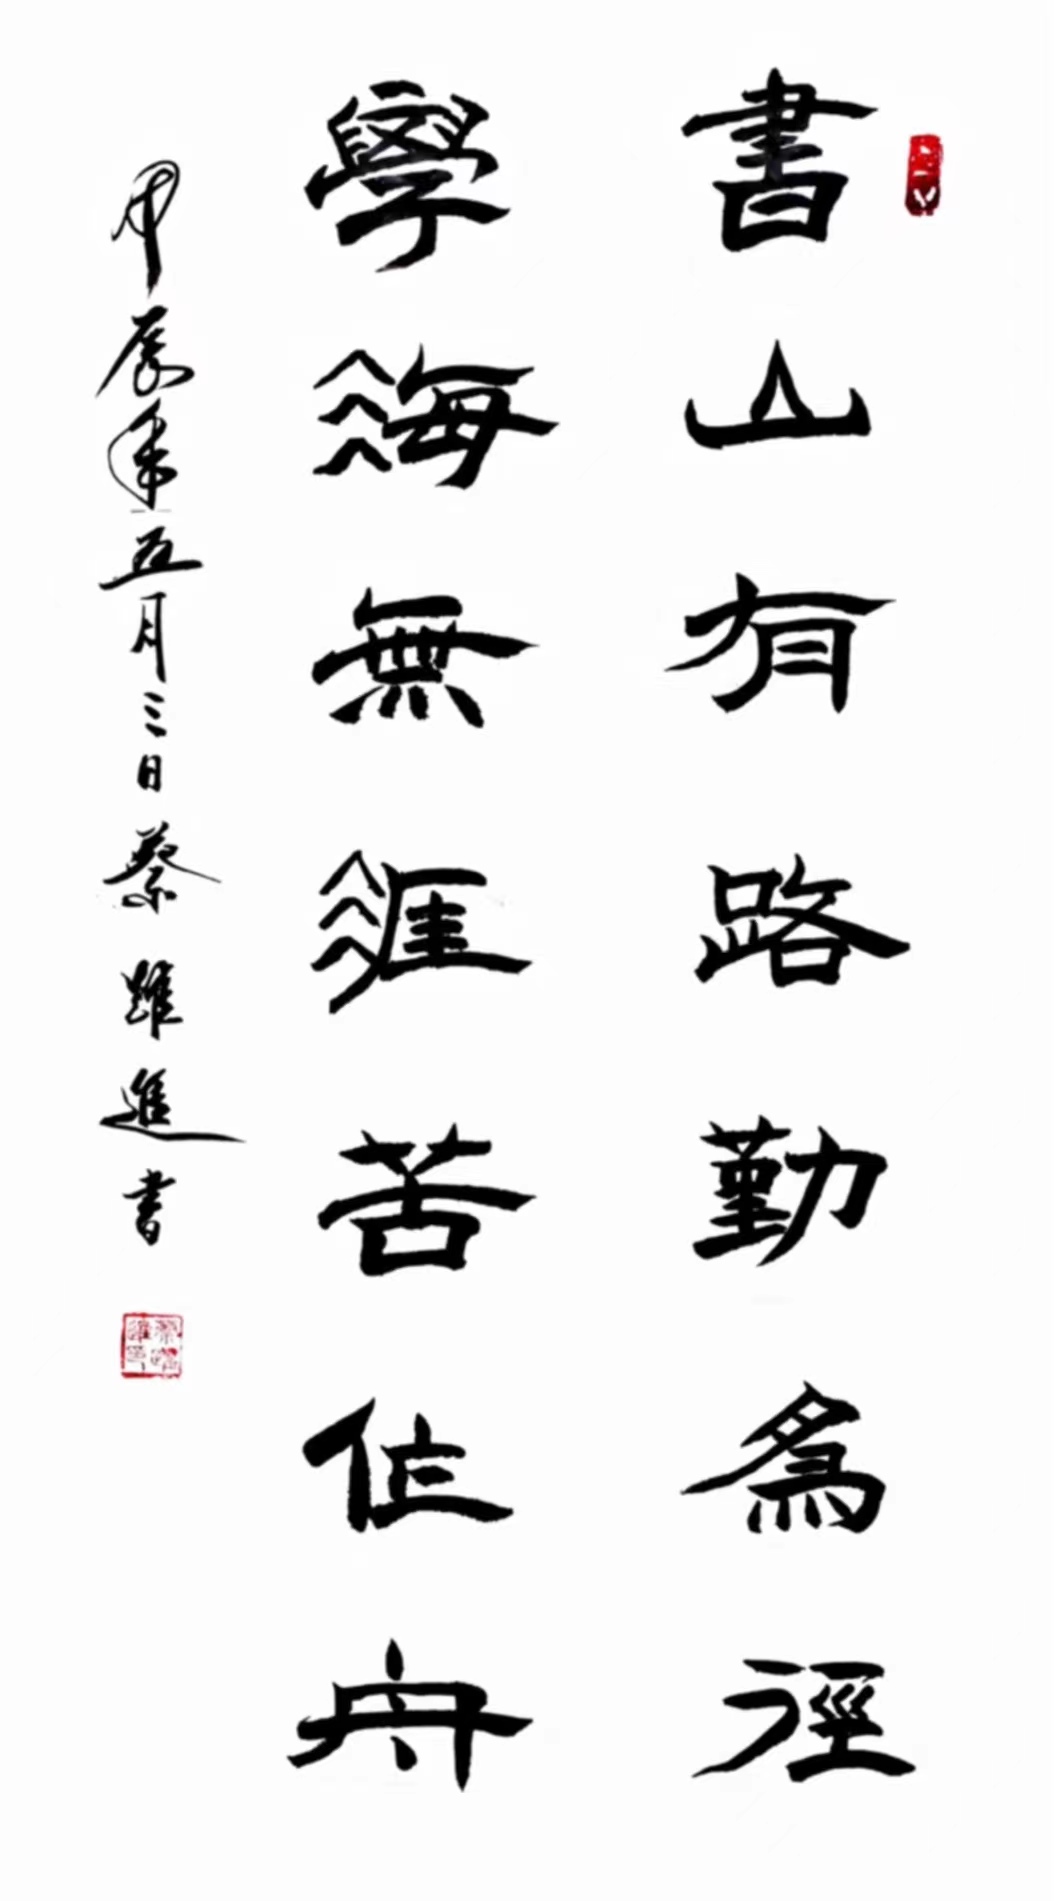 書山有路勤為徑
學海無涯苦作舟
甲辰年五月三日蔡躍進書